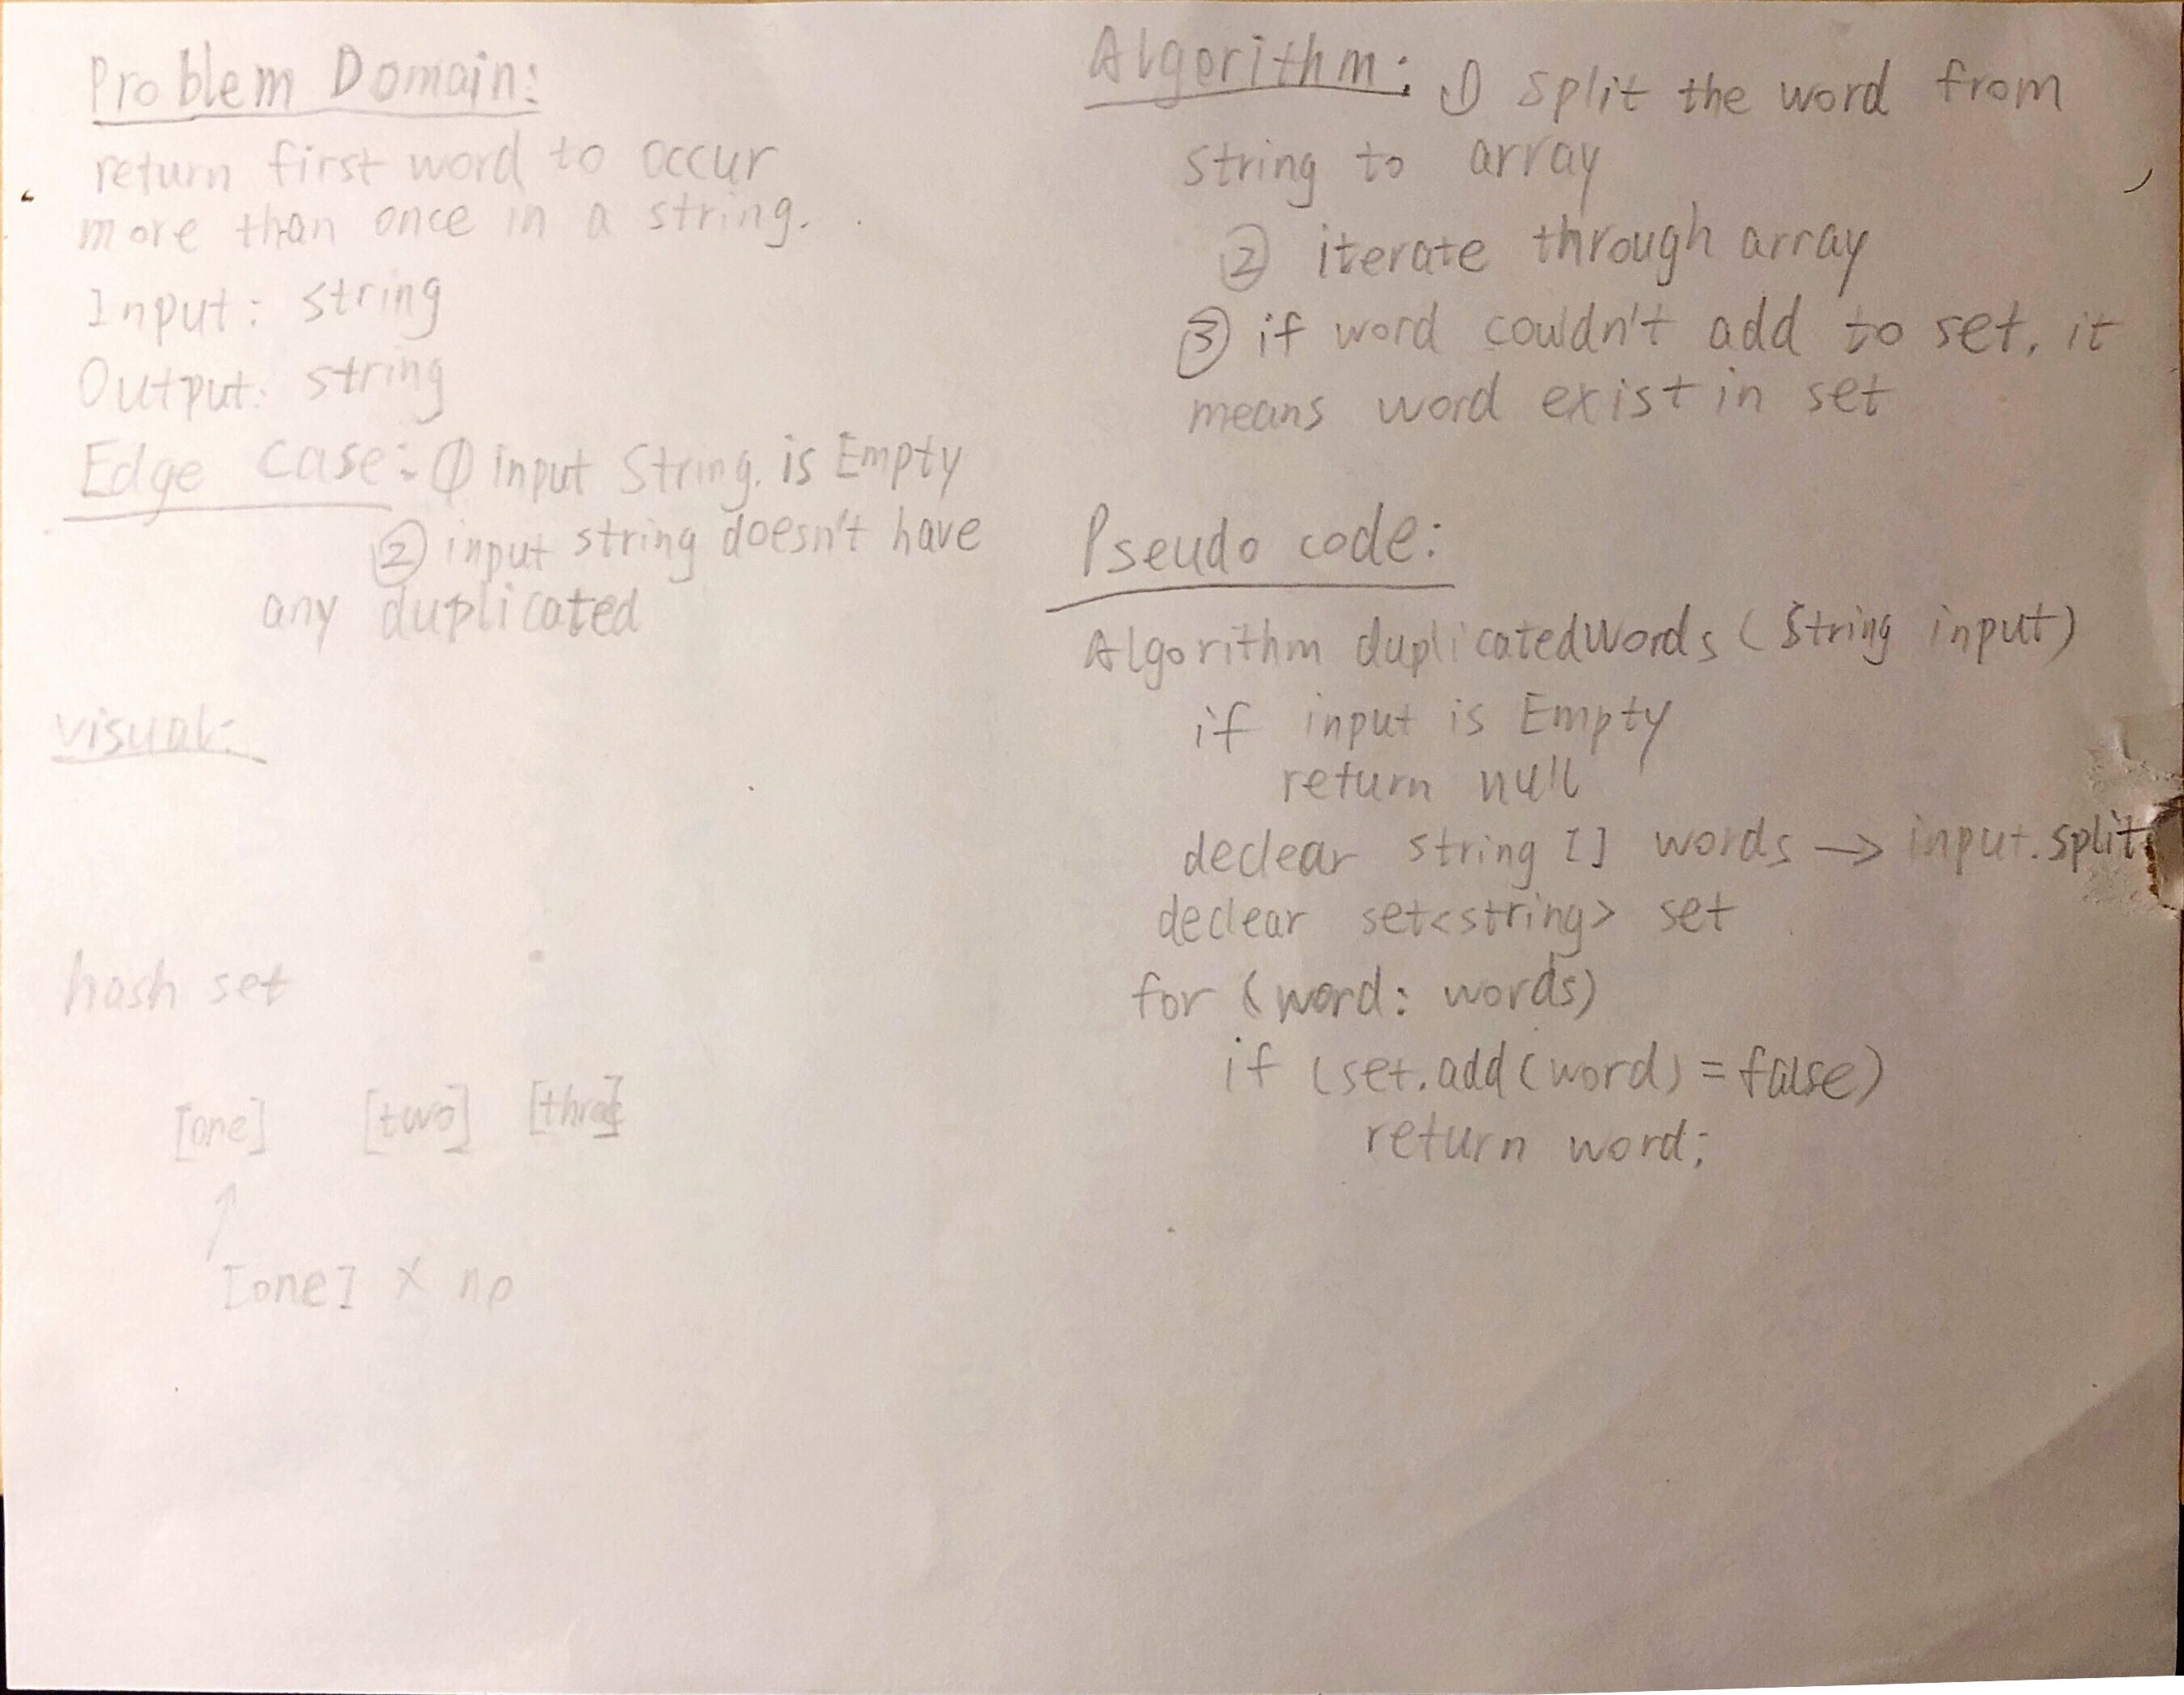 Problem Domain:
return first word to occur
more than once in a string.
Input: string
Output: string
Edge case: ① input String. is Empty
② input string doesn't have
any duplicated
visual:
hash set
[one] [two] [three]
[one] X no
Algorithm: ① split the word from
string to array
② iterate through array
③ if word couldn't add to set, it
means word exist in set
Pseudo code:
Algorithm duplicatedWords (String input)
if input is Empty
return null
declear string [] words → input.split
declear set<string> set
for (word: words)
if (set.add(word) = false)
return word;